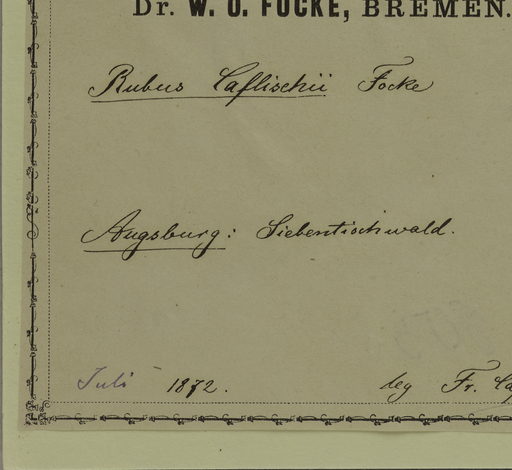 Dr. W. O. FOCKE, BREMEN.
Rubus Caflischii Focke
Augsburg: Siebentischwald.
Juli 1872. leg Fr. Ca